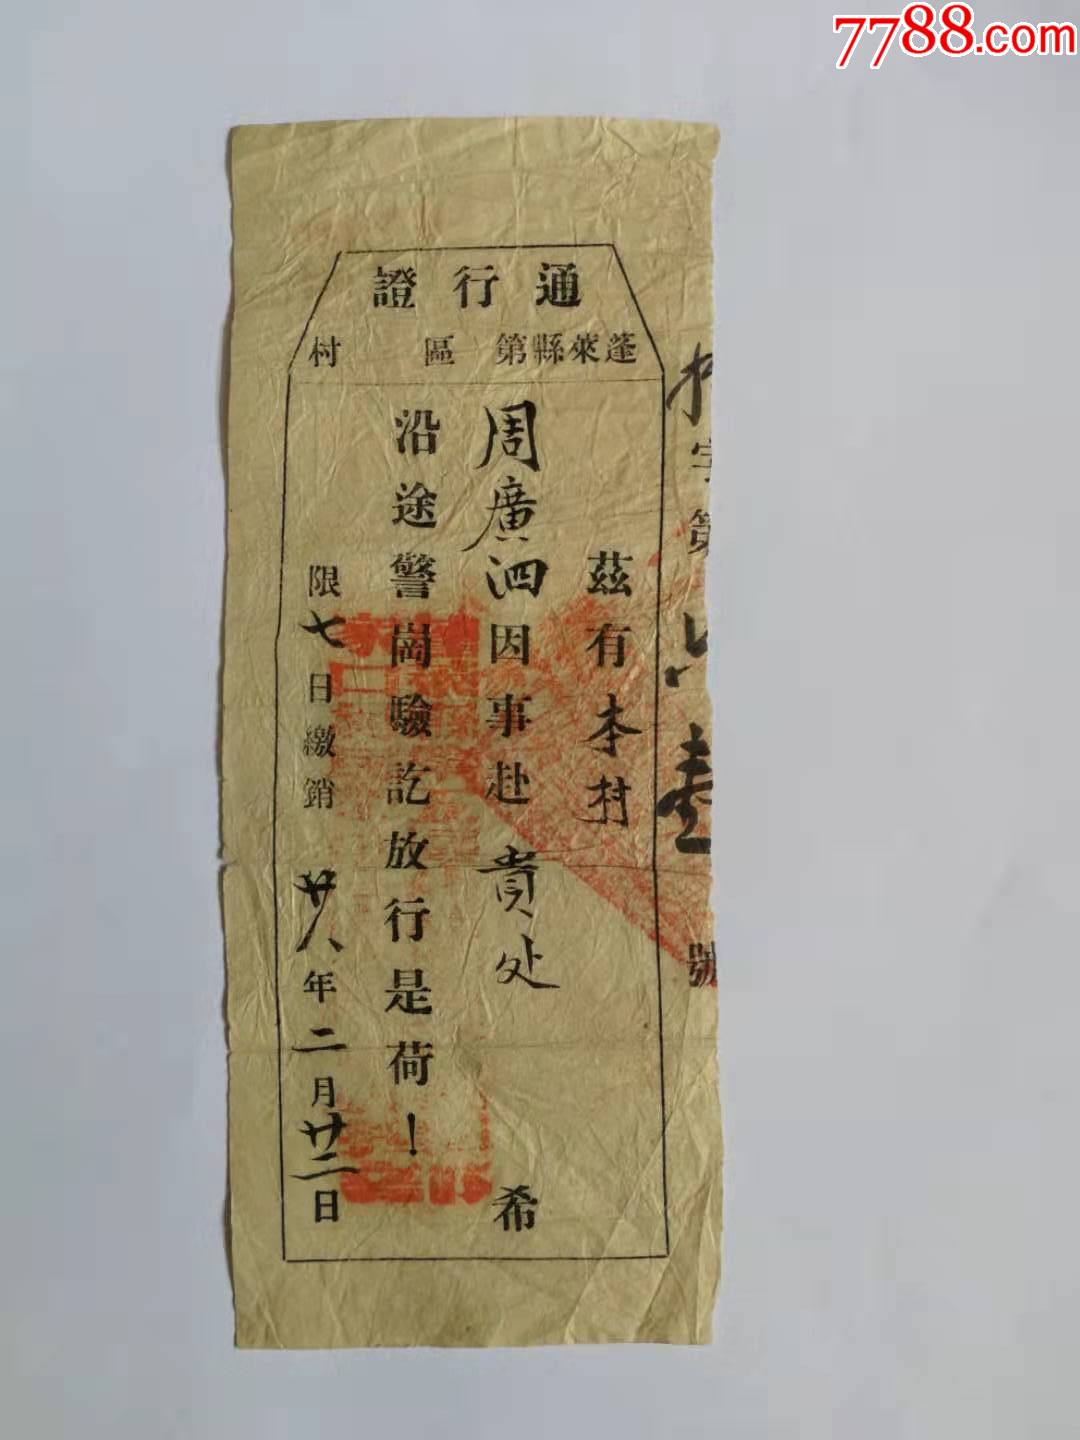 7788.com
通行證
蓬萊縣第 區 村
茲有本村
周廣泗因事赴貴处 希
沿途警崗驗訖放行是荷！
限七日繳銷 廿八年二月廿二日
字第
壹
號